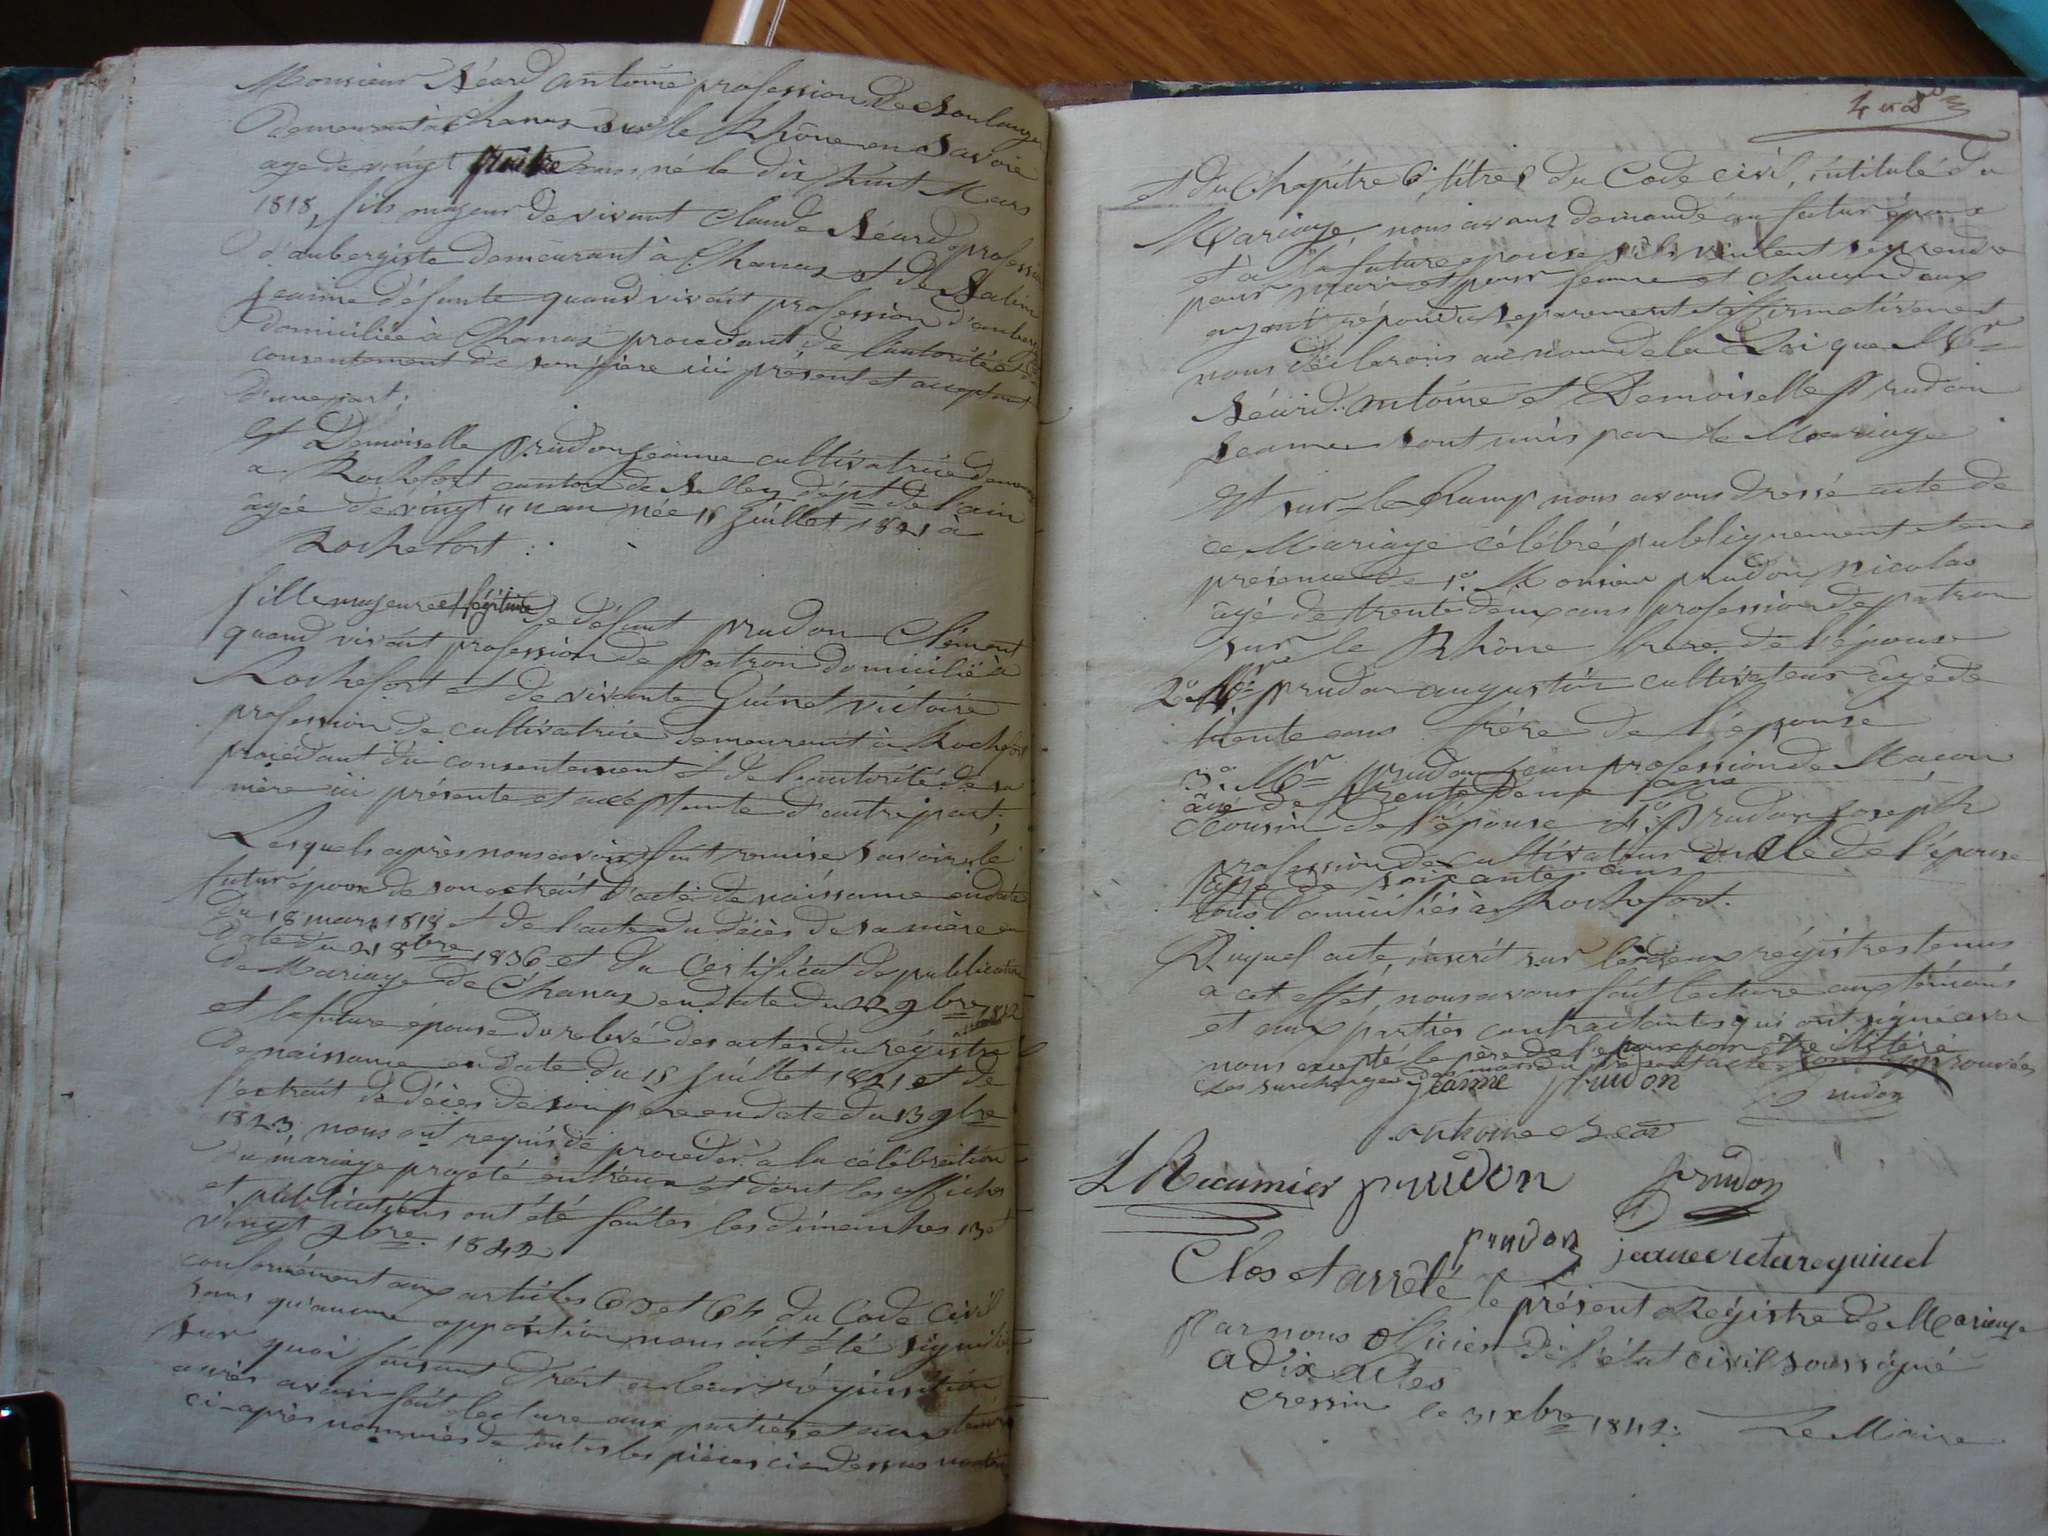 Monsieur Béard antoine profession de Boulanger
demeurant à Chanaz sur le Rhône en Savoie
age de vingt quatre ans, né le dix huit Mars
1818, fils majeur de vivant Claude Béard profession
d'aubergiste demeurant à Chanaz et de
Jeanne défunte quand vivait profession d'auberg
domiciliée à Chanaz procédant de l'autorité et
consentement de son père ici présent et acceptant
d'une part;
Et Demoiselle Prudon Jeanne cultivatrice demeurant
a Rochefort canton de Belley dépt de l'ain
âgée de vingt un an née 15 Juillet 1821 à
Rochefort :
fille majeure et légitime de défunt prudon Clément
quand vivait profession de Patron domicilié à
Rochefort et de vivante Guinet victoire
profession de cultivatrice demeurant à Rochefort
procédant du consentement et de l'autorité de sa
mère ici présente et acceptante d'autre part;
Lesquels après nous avoir fait remise savoir le
futur époux de son extrait d'acte de naissance en date
du 18 mars 1818 et de l'acte du décès de sa mère en
date du 21 8bre 1836 et du Certificat de publication
de Mariage de Chanaz en date du 22 9bre 1842
et la future épouse du relevé des actes du régistre
de naissance en date du 15 Juillet 1821 et de
l'extrait de décès de son pere en date du 13 9bre
1823, nous ont requis de procéder à la célébration
du mariage projeté entr'eux et dont les affiches
et publications ont été faites les dimanches 13 et
vingt 9bre 1842
conformément aux articles 63 et 64 du Code Civil
sans qu'aucune opposition nous ait été signifiée
sur quoi faisant droit à leur réquisition
après avoir fait lecture aux parties et aux témoins
ci-après nommés de toutes les pièces ci-dessus
et du Chapitre 6, titre 5 du Code civil, intitulé du
Mariage, nous avons demandé au futur époux
et à la future epouse s'ils veulent se prendre
pour mari et pour femme et chacun d'eux
ayant répondu séparément et affirmativement
nous déclarons au nom de la Loi que Mr
Béard antoine et Demoiselle Prudon
Jeanne sont unis par le Mariage
Et sur le Champ nous avons dressé acte de
ce Mariage célébré publiquement et en
présence de 1o Monsieur prudon nicolas
âgé de trente deux ans profession de patron
sur le Rhône frère de l'épouse
2o Mr prudon augustin cultivateur âgé de
trente ans frère de l'épouse
3o Mr Prudon Jean profession de Macon
âgé de trente deux ans
cousin de l'épouse 4o Prudon Joseph
profession de cultivateur oncle de l'épouse
âgé de soixante ans
tous domiciliés à Rochefort.
Duquel acte, inscrit sur les deux régistres tenus
a cet effet, nous avons fait lecture aux témoins
et aux parties contractantes qui ont signé avec
nous excepté le père de l'époux pour être illitéré
Les surcharges du présent acte sont approuvées
jeanne prudon
Prudon
antoine Bear
L Recamier prudon prudon
prudon
Clos et arrêté le présent Régistre de Mariage
Par nous Officier de l'état civil soussigné
a dix actes
cressin le 31 xbre 1842.
Le Maire